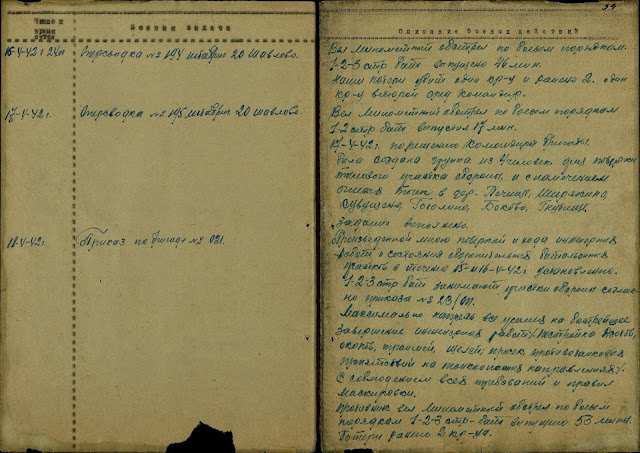 Число и время
Боевая задача
15-V-42 г 24 00 Оперсводка № 194 штабриг 20 Шавлово.
17-V-42 г. Оперсводка № 195 штабриг 20 Шавлово.
18-V-42 г. Приказ по бригаде № 021.
34
Описание боевых действий
Вел минометный обстрел по боевым порядкам.
1-2-3 стр. бат выпущено 46 мин.
Наши потери убит один кр-ц и ранено 2. один
кр-ц второй сред командир.
Вел минометный обстрел по боевым порядкам
1-2 стр бат выпустил 17 мин.
17-V-42 г. по решению Командира бригады
была создана группа из 4 человек для поверки
участка обороны, и с намечением
в дер. Печищи,
Гоголино, Боково,
Задание выполнено.
Произведенной мною поверкой и хода инженерных
работ и состояния оборонительных батальонных
участков в течении 15 и 16-V-42 г. установлено.
1-2-3 стр бат занимают участки обороны соглас-
но приказа № 23/ОП.
Максимально напрячь все усилия на быстрейшее
завершение инженерных работ /достройка
окопов, траншей, щелей, противотанковых
препятствий на танкоопасных направлениях/.
С соблюдением всех требований и правил
маскировки.
Противник вел минометный обстрел по боевым
порядкам 1-2-3 стр-бат выпущено 53 мины.
Потери ранено 2 кр-ца.